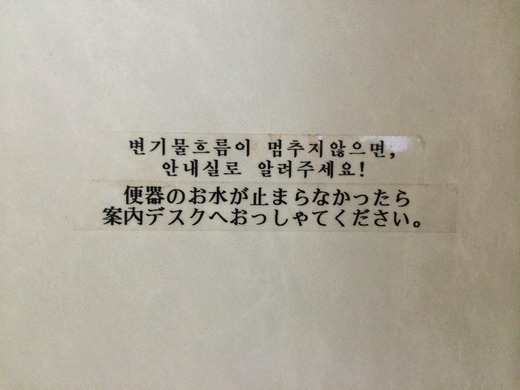 변기물흐름이 멈추지않으면,
안내실로 알려주세요!
便器のお水が止まらなかったら
案内デスクへおっしゃてください。